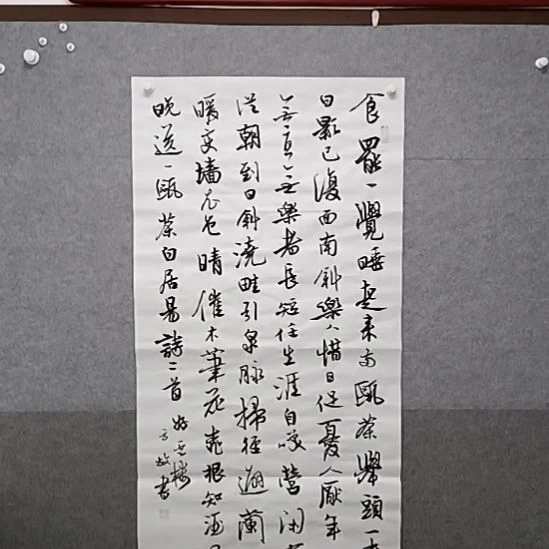 食罷一覺睡起来兩甌茶舉頭一
日影已復西南斜樂人惜日促憂人厭年
無憂無樂者長短任生涯自咲營閑
從朝到日斜澆畦引泉脉掃徑避蘭
暖变墻衣色晴催木筆花桃根知酒
晚送一甌茶白居易詩二首
樓
書